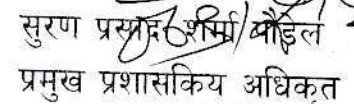 सुरण प्रसाद शर्मा पौडेल
प्रमुख प्रशासकिय अधिकृत